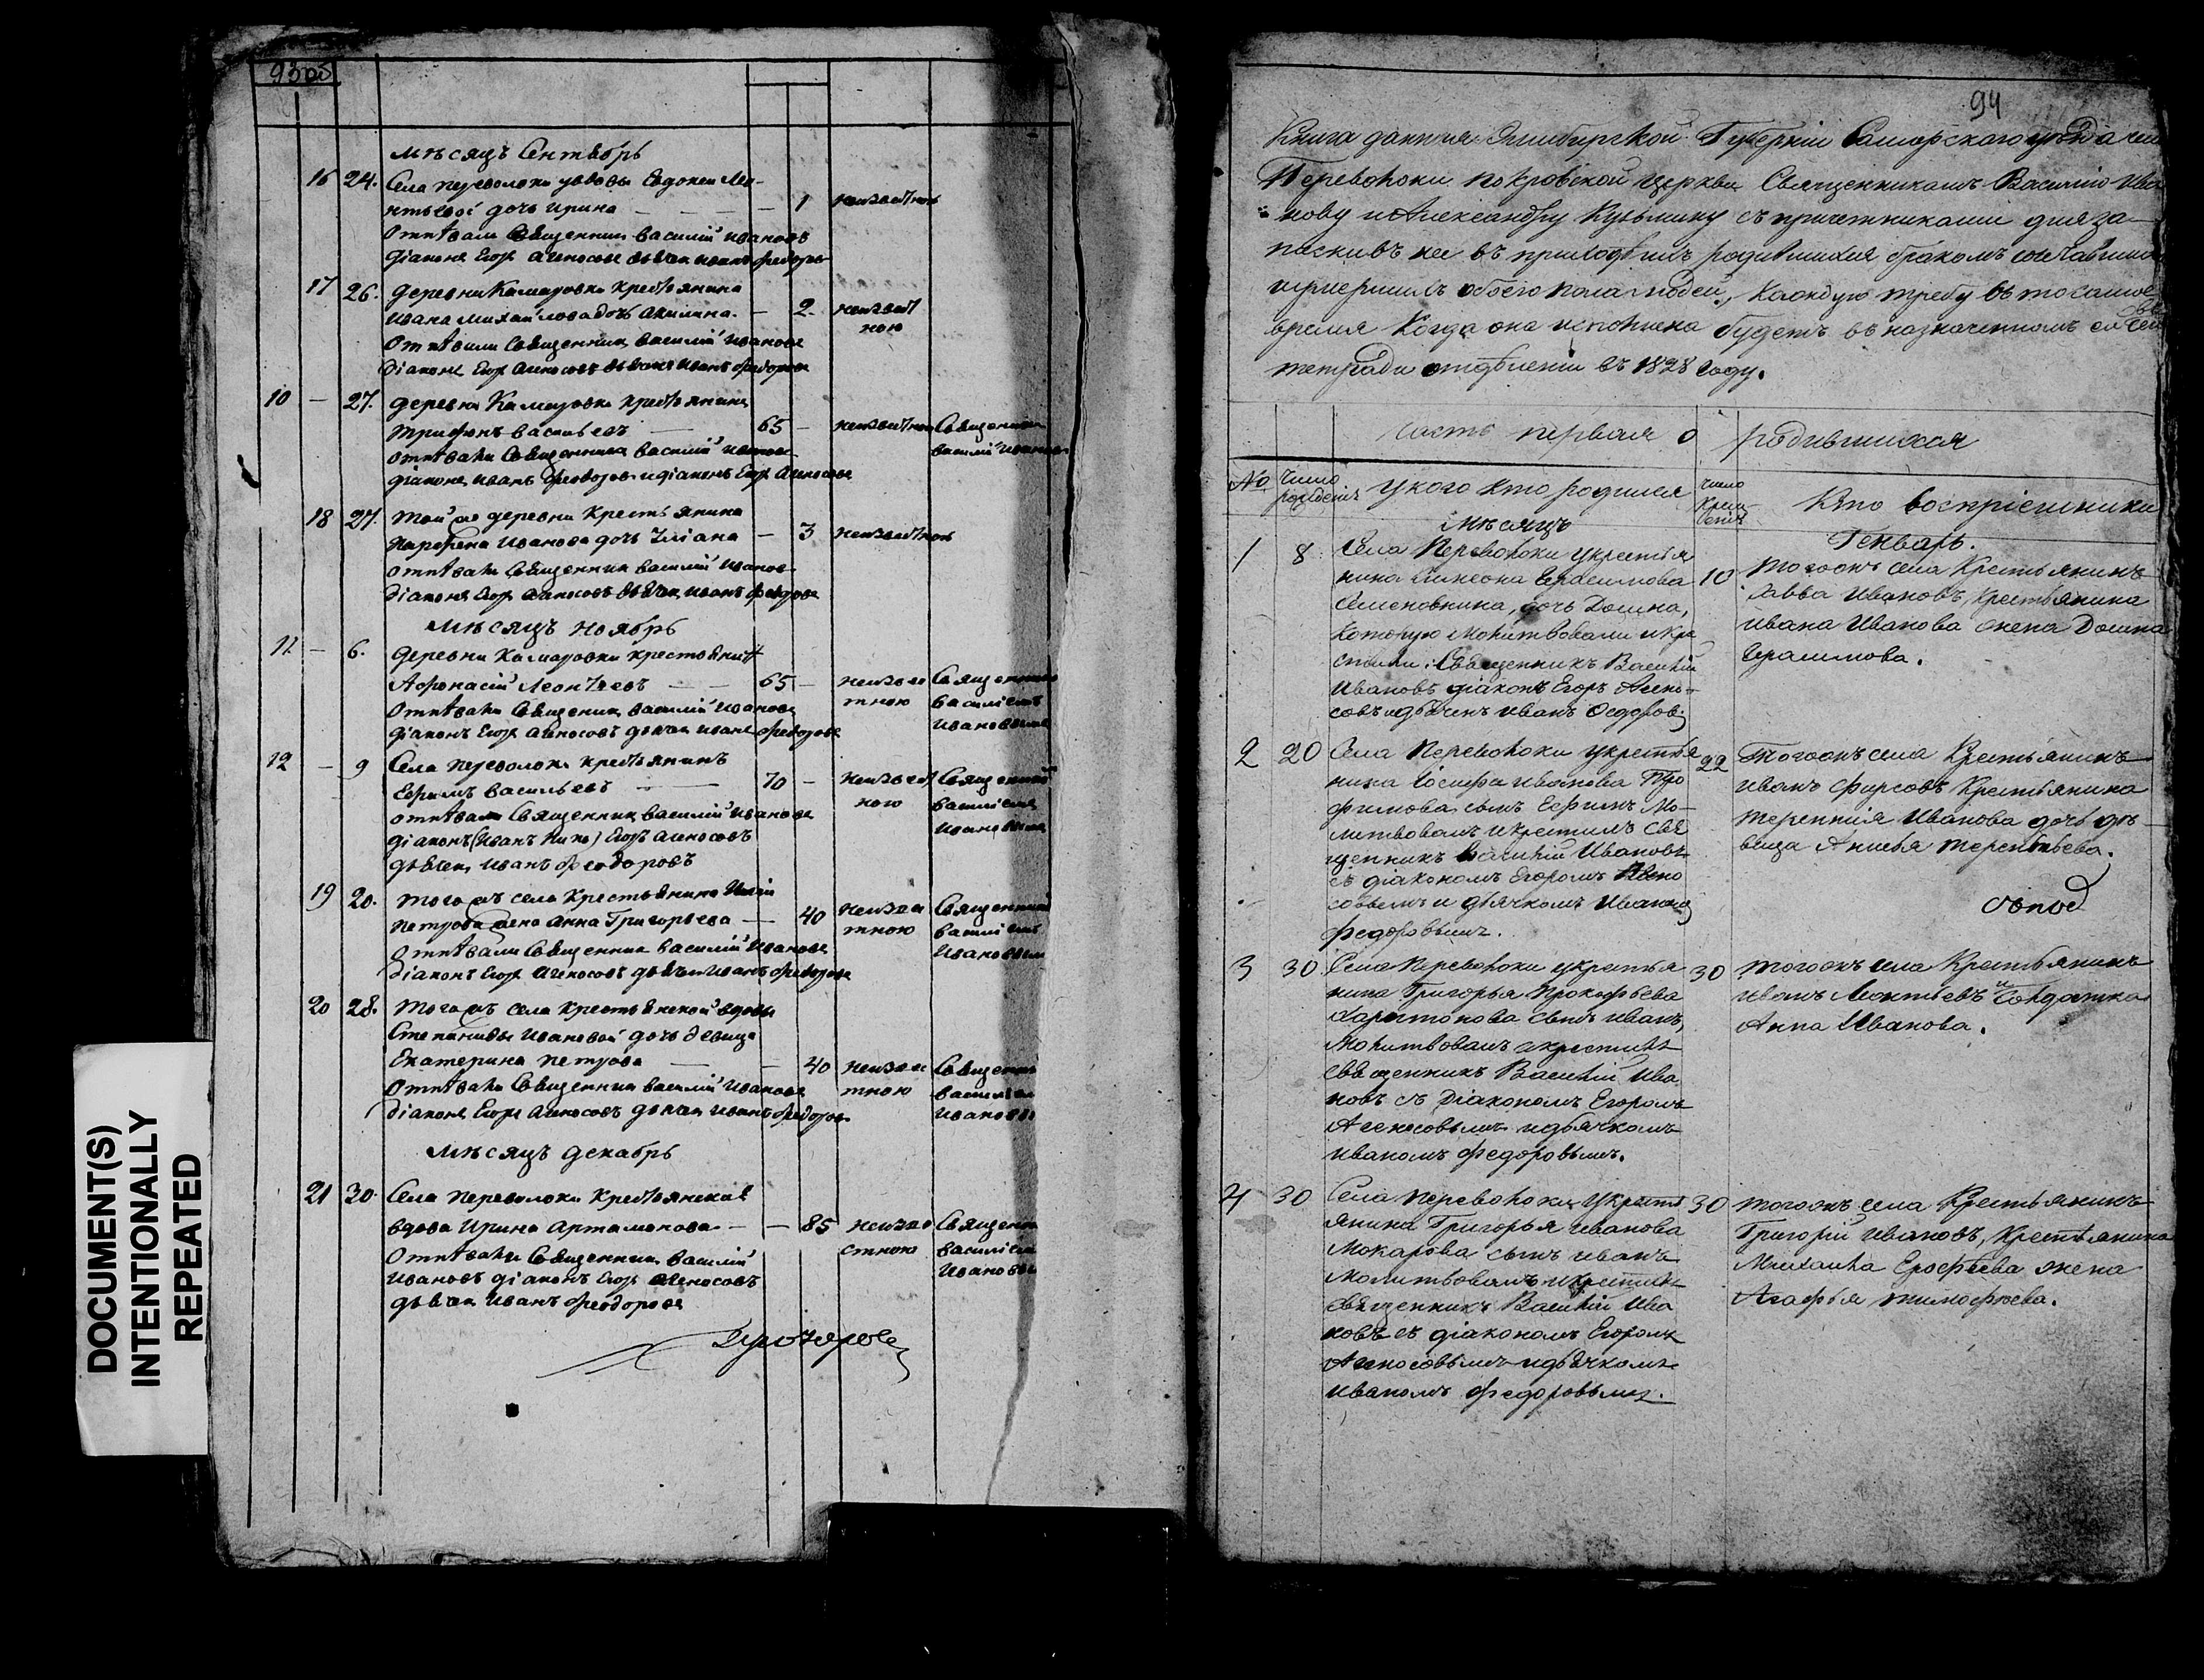 93 об
мѣсяцъ Сентябрь
16 24. Села переволоки у вдовы Евдокеи Лео-
нтьевой дочь Ирина — 1 неизвестною
отпѣвали Священникъ василий Ивановъ
діаконъ Егоръ Аѳеносовъ дьячокъ иванъ Феодоровъ
17 26. деревни Камаровки крестьянина
Ивана михайлова дочь акилина. — 2. неизвест
ною
отпѣвали Священникъ василий Ивановъ
діаконъ Егоръ дьячокъ иванъ феодоровъ
10 — 27. деревни Камаровки крестьянинъ
трифонъ васильевъ — 65 — неизвестною Священник
отпѣвали Священникъ василий Ивановъ
діаконъ иванъ Феодоровъ и діаконъ Егоръ
18 27. той же деревни крестьянина
Парфена Иванова дочь Уліана — 3 неизвестною
отпѣвали Священникъ василий Ивановъ
діаконъ Егоръ дьячокъ иванъ феодоровъ
мѣсяцъ ноябрь
11 — 6. деревни Камаровки крестьянинъ
Афонасій Леонтьевъ — 65 — неизвес Священникомъ
тною василіемъ
отпѣвали Священникъ василий Ивановъ
Ивановымъ
діаконъ Егоръ дьячокъ иванъ феодоровъ
12 — 9 Села переволоки крестьянинъ
Ефимъ васильевъ — 70 — неизвест Священникомъ
ною василіемъ
отпѣвали Священникъ василий Ивановъ
Ивановымъ
діаконъ Егоръ
дьячокъ Иванъ феодоровъ
19 20. того жъ села крестьянина
петрова жена Анна Григорьева — 40 неизвес Священникомъ
тною василіемъ
отпѣвали Священникъ василий Ивановъ
Ивановымъ
діаконъ Егоръ дьячокъ Иванъ феодоровъ
20 28. того жъ села крестьянской вдовы
Степаниды Ивановой дочь девица
Екатерина петрова — 40 неизвес Священникомъ
отпѣвали Священникъ василий Ивановъ тною василіемъ
діаконъ Егоръ дьячокъ Иванъ феодоровъ Ивановымъ
мѣсяцъ декабрь
21 30. Села переволоки крестьянская
вдова Ирина Артамонова — — 85 неизве Священник
стною василіем
отпѣвали Священникъ василий
Ивановы
Ивановъ діаконъ Егоръ
дьячокъ Иванъ феодоровъ
94
Книга данная Симбирской Губерніи Самарского уѣзда села
Переволоки покровской церкви Священникамъ Василію Ива
нову и Александру Кузьмину съ причетниками для за
писки въ нее въ приходѣ ихъ родившихся, бракомъ сочетавшихся
и умершихъ обоего пола людей, каждую требу въ то самое
время когда она исполнена будетъ въ назначенномъ
тетради отдѣленіи въ 1828 году.
часть первая о родившихся
№ Число рожденія у кого кто родился число крещенія Кто воспріемники
Мѣсяцъ Генварь.
1 8 Села Переволоки у крестья
нина Симеона Герасимова
Семеновнина, дочь Домна,
которую молитвовали и кре
стили: Священникъ Василій
Ивановъ діаконъ Егоръ
и дьячекъ иванъ Федоровъ
10 Тогожъ села Крестьянинъ
Савва Ивановъ, крестьянина
ивана Иванова жена Домна
Герасимова.
2 20 Села Переволоки у крестья
нина Іосифа Иванова Тро
фимова сынъ Ефимъ Мо-
литвовалъ и крестилъ Свя
щенникъ Василій Ивановъ
съ діакономъ Егоромъ
и дьячкомъ Иваномъ
федоровымъ.
22 Тогожъ села Крестьянинъ
иванъ фирсовъ Крестьянина
терентія Иванова дочь дѣ
вица Анисья терентьева.
3 30 Села Переволоки у крестья
нина Григорья Прокофьева
Харитонова сынъ иванъ,
Молитвовалъ и крестилъ
священникъ Василій Ива
новъ съ Діакономъ Егоромъ
и дьячкомъ
иваномъ федоровымъ.
30 тогожъ села Крестьянинъ
иванъ Леонтьевъ и Солдатка
Анна Иванова.
4 30 Села Переволоки у кресть
янина Григорья Иванова
Мокарова сынъ иванъ
Молитвовалъ и крестилъ
священникъ Василій Ива
новъ съ діакономъ Егоромъ
и дьячкомъ
иваномъ федоровымъ.
30 тогожъ села Крестьянинъ
Григорій Ивановъ, Крестьянина
Михаила Ерофѣева жена
Агафья тимофѣева.
DOCUMENT(S)
INTENTIONALLY
REPEATED